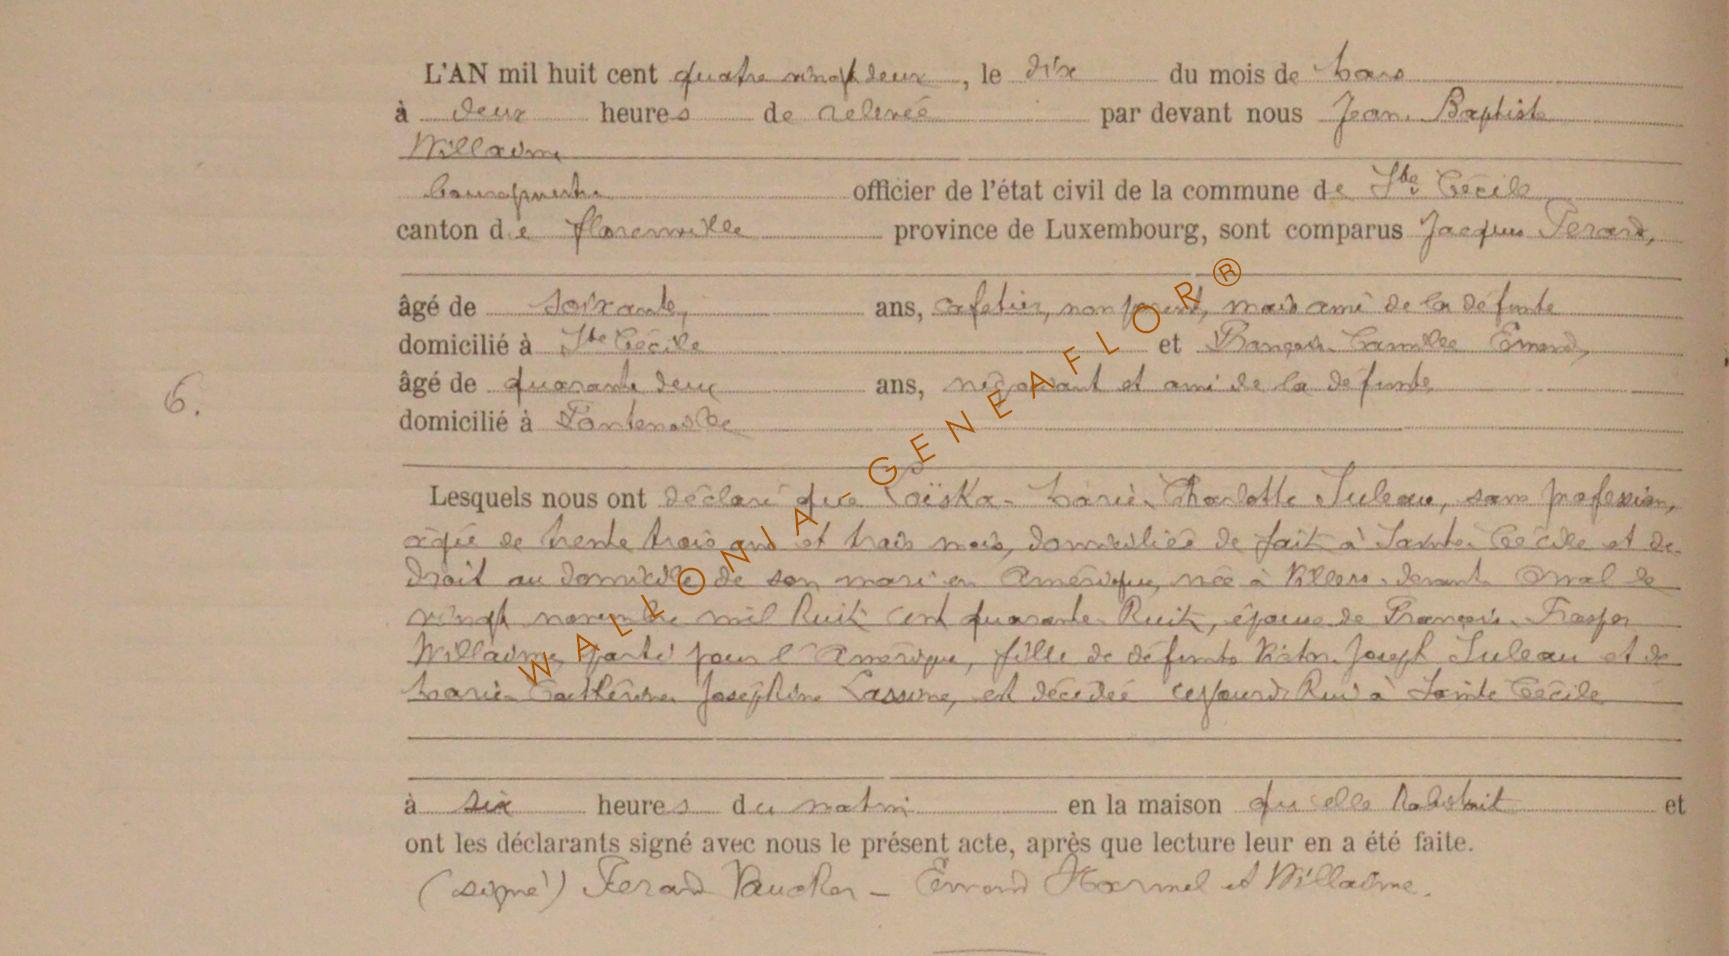 L'AN mil huit cent quatre vingt deux, le dix du mois de Mars
à deux heures de relevée par devant nous Jean Baptiste
Willaime
Bourgmestre officier de l'état civil de la commune de Ste Cécile
canton de florenville province de Luxembourg, sont comparus Jacques Ferard,
âgé de soixante, ans, cafetier, non parent, mais ami de la défunte
domicilié à Ste Cécile et François Camille Emond,
âgé de quarante deux ans, négociant et ami de la défunte
6.
domicilié à Fontenoille
Lesquels nous ont déclaré que Marie Charlotte Suleau, sans profession,
agée de trente trois ans et trois mois, domiciliée de fait à Sainte Cécile et de
droit au domicile de son mari en Amérique, née à Villers devant Orval le
vingt novembre mil huit cent quarante huit, épouse de François Prosper
Willaime, parti pour l'Amérique, fille de défunts Joseph Suleau et de
Marie Catherine Joséphine Lassine, est décédée cejourd'hui à Sainte Cécile
à six heures du matin en la maison qu'elle habitait et
ont les déclarants signé avec nous le présent acte, après que lecture leur en a été faite.
(signé) Ferard Vaucher - Emond Harmel et Willaime.
WALLONIA - GENEAFLOR®